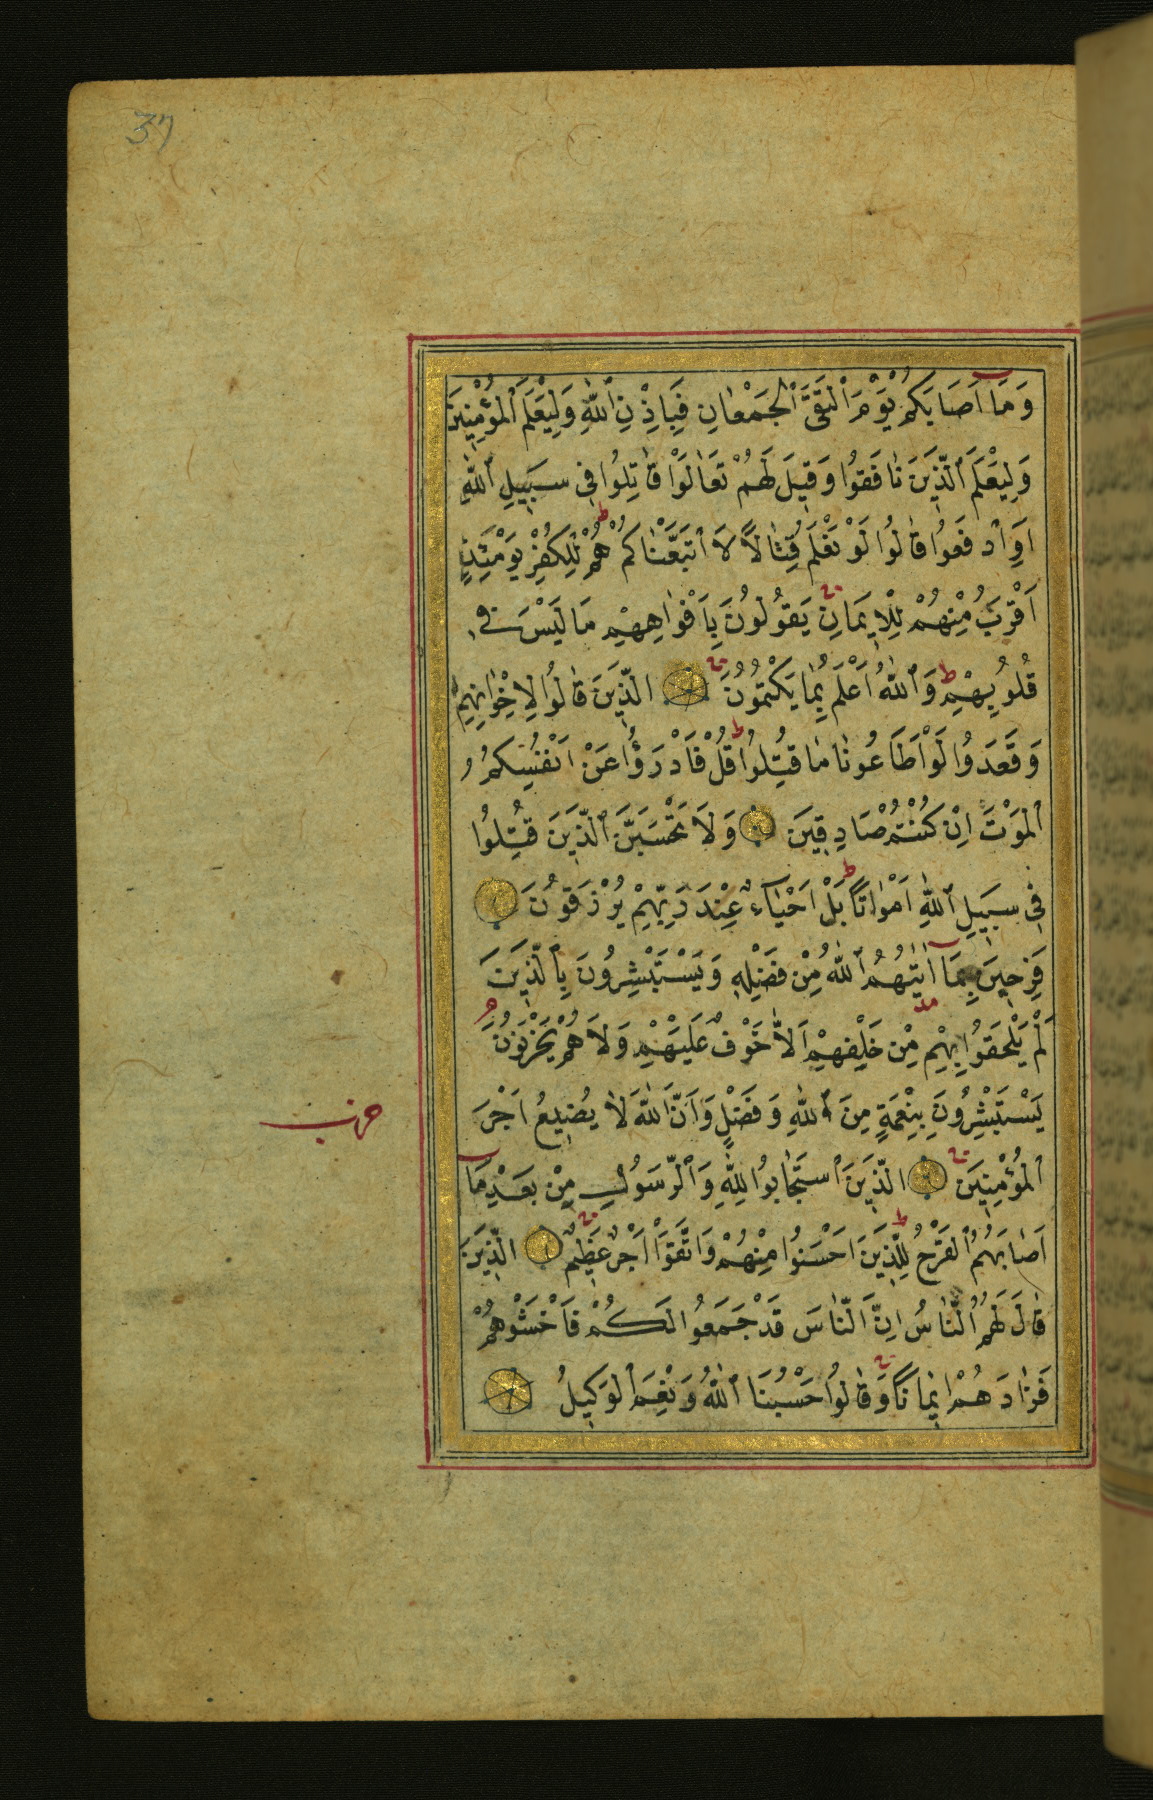 37
وَمَا اَصَابَكُمْ يَوْمَ ٱلْتَقَى ٱلْجَمْعَانِ فَبِاِذْنِ ٱللّٰهِ وَلِيَعْلَمَ ٱلْمُؤْمِنِينَ
وَلِيَعْلَمَ ٱلَّذِينَ نَافَقُوا وَقِيلَ لَهُمْ تَعَالَوْا قَاتِلُوا فِي سَبِيلِ ٱللّٰهِ
اَوِ ٱدْفَعُوا قَالُوا لَوْ نَعْلَمُ قِتَالًا لَا ٱتَّبَعْنَاكُمْ ط هُمْ لِلْكُفْرِ يَوْمَئِذٍ
اَقْرَبُ مِنْهُمْ لِلْاِيمَانِ يَقُولُونَ بِاَفْوَاهِهِمْ مَا لَيْسَ فِي
قُلُوبِهِمْ ط وَٱللّٰهُ اَعْلَمُ بِمَا يَكْتُمُونَ الَّذِينَ قَالُوا لِاِخْوَانِهِمْ
وَقَعَدُوا لَوْ اَطَاعُونَا مَا قُتِلُوا ط قُلْ فَادْرَؤُا عَنْ اَنْفُسِكُمُ
ٱلْمَوْتَ اِنْ كُنْتُمْ صَادِقِينَ وَلَا تَحْسَبَنَّ ٱلَّذِينَ قُتِلُوا
فِي سَبِيلِ ٱللّٰهِ اَمْوَاتًا ط بَلْ اَحْيَاءٌ عِنْدَ رَبِّهِمْ يُرْزَقُونَ
فَرِحِينَ بِمَا اٰتٰيهُمُ ٱللّٰهُ مِنْ فَضْلِهِ وَيَسْتَبْشِرُونَ بِٱلَّذِينَ
لَمْ يَلْحَقُوا بِهِمْ مِنْ خَلْفِهِمْ اَلَّا خَوْفٌ عَلَيْهِمْ وَلَا هُمْ يَحْزَنُونَ
يَسْتَبْشِرُونَ بِنِعْمَةٍ مِنَ ٱللّٰهِ وَفَضْلٍ وَاَنَّ ٱللّٰهَ لَا يُضِيعُ اَجْرَ
حزب
ٱلْمُؤْمِنِينَ الَّذِينَ ٱسْتَجَابُوا لِلّٰهِ وَٱلرَّسُولِ مِنْ بَعْدِ مَا
اَصَابَهُمُ ٱلْقَرْحُ ط لِلَّذِينَ اَحْسَنُوا مِنْهُمْ وَاتَّقَوْا اَجْرٌ عَظِيمٌ الَّذِينَ
قَالَ لَهُمُ ٱلنَّاسُ اِنَّ ٱلنَّاسَ قَدْ جَمَعُوا لَكُمْ فَاخْشَوْهُمْ
فَزَادَهُمْ اِيمَانًا وَقَالُوا حَسْبُنَا ٱللّٰهُ وَنِعْمَ ٱلْوَكِيلُ